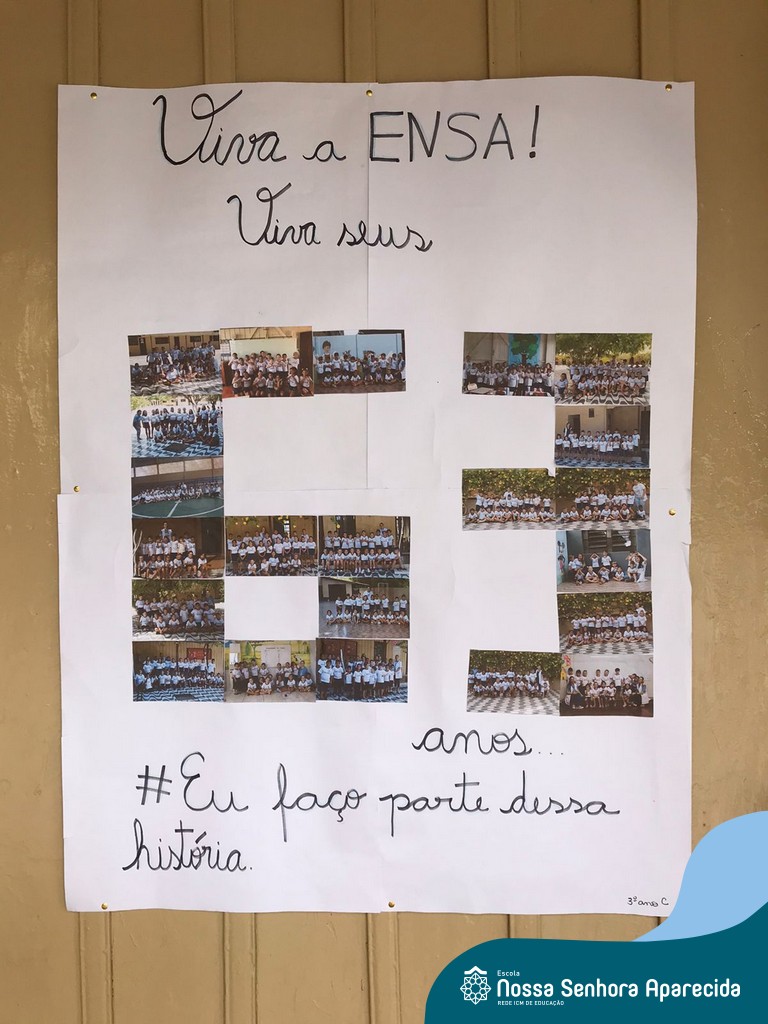 Viva a ENSA!
Viva seus
63
anos...
#Eu faço parte dessa
história.
3º ano C
Escola
Nossa Senhora Aparecida
REDE ICM DE EDUCAÇÃO